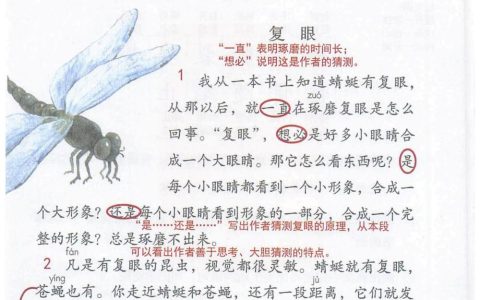 复眼
“一直”表明琢磨的时间长；
“想必”说明这是作者的猜测。
1
我从一本书上知道蜻蜓有复眼，
zuó
从那以后，就一直在琢磨复眼是怎么
回事。“复眼”，想必是好多小眼睛合
成一个大眼睛。那它怎么看东西呢？是
每个小眼睛都看到一个小形象，合成一
个大形象？还是每个小眼睛看到形象的一部分，合成一个完
“是……还是……”写出作者猜测复眼的原理，从本段
整的形象？总是琢磨不出来。
可以看出作者善于思考、大胆猜测的特点。
fán
2 凡是有复眼的昆虫，视觉都很灵敏。蜻蜓就有复眼，
yíng
jù
苍蝇也有。你走近蜻蜓和苍蝇，还有一段距离，它们就发